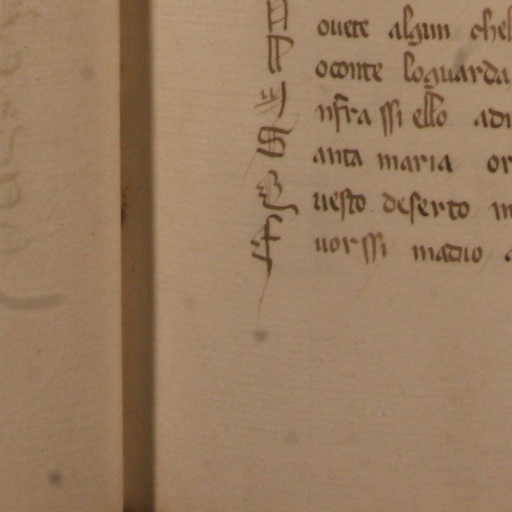 Pouete algun chel
Poconte loguarda
Infra ssi ello adi
Santa maria or
Questo deserto m
Fuor ssi maduo